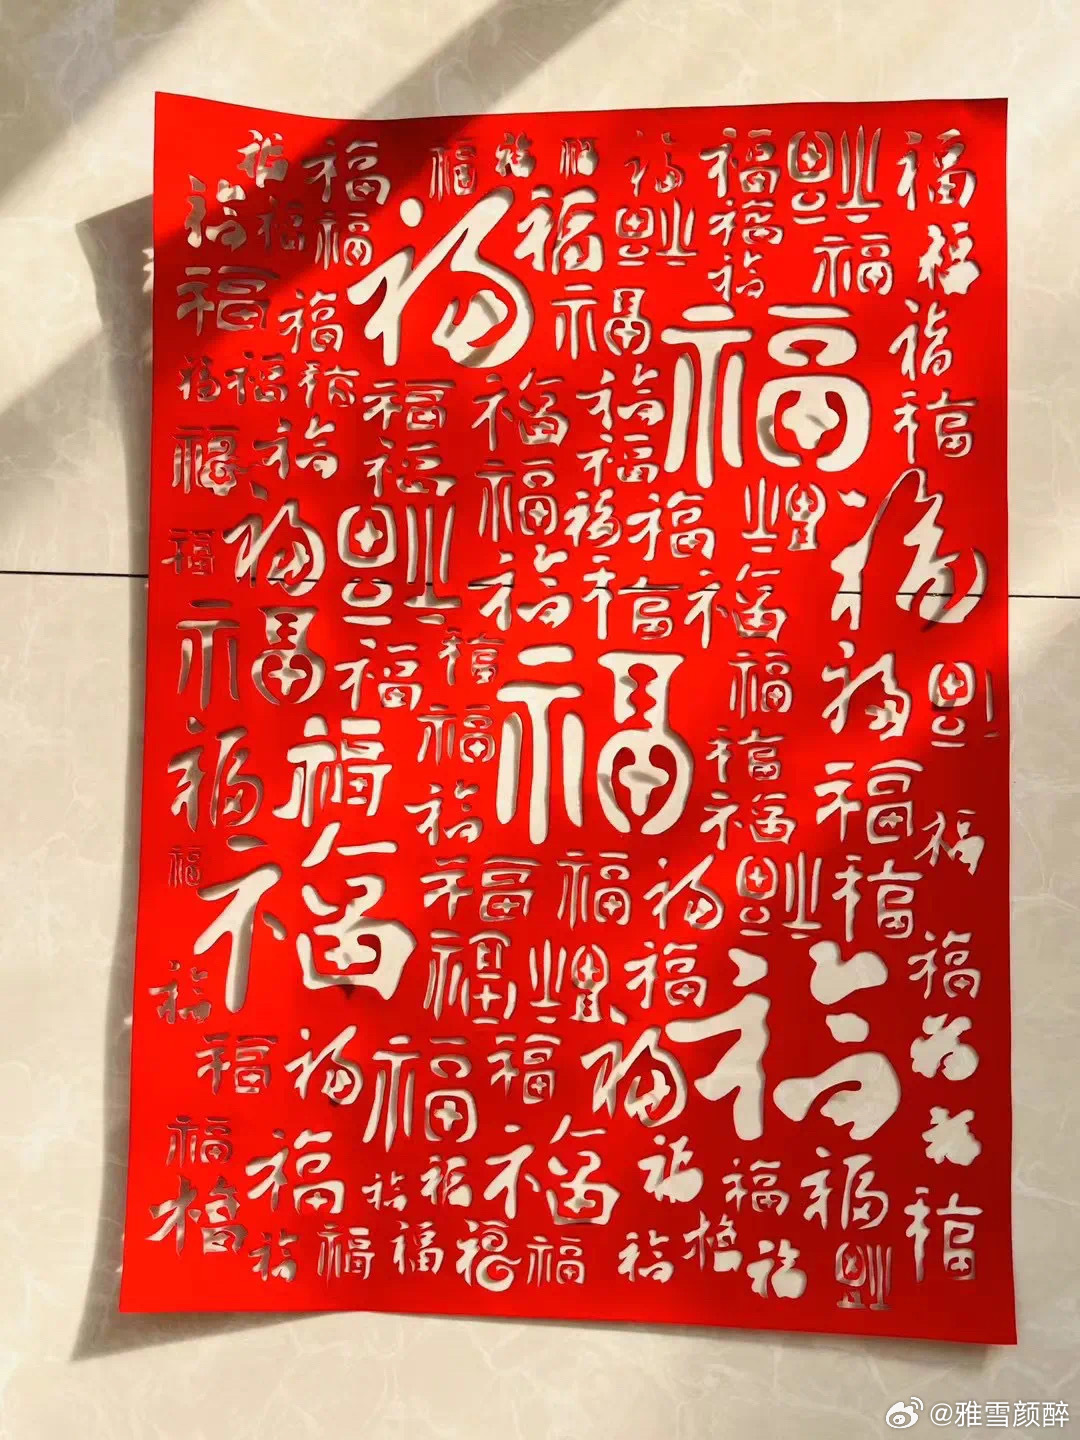 福福福福福福福福福
福福福福福福福
福福福福福福
福福福福福福福福
福福福福福
福福福福福福福福
福福福
福福福福福福福
福福福福福
福福福
福福福福福福福
福福福福福福
福福福福福福
福福福福福福福福
福福
福福福福福福福福福福福
@雅雪颜醉